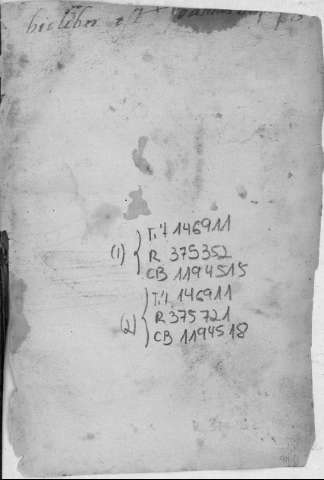 hic liber est
(1) { Tit 146911
R 375352
CB 1194515
(2) { Tit 146911
R 375721
CB 1194518